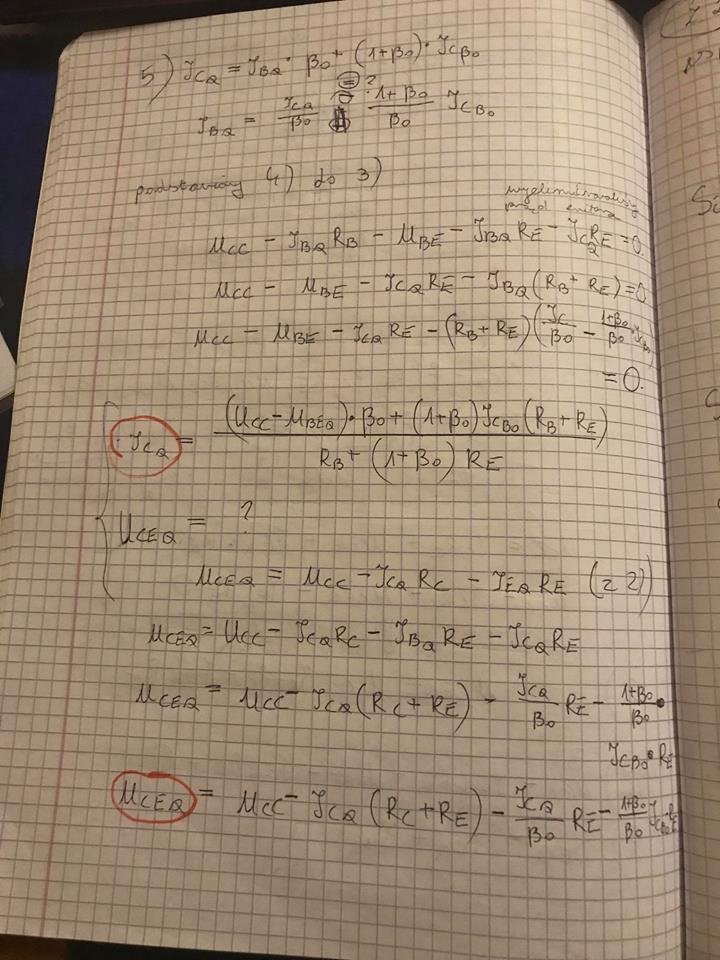 5) I_CQ = I_BQ · β₀ + (1+β₀) · I_CB₀
I_BQ = I_CQ/β₀ = ? (1+β₀)/β₀ I_CB₀
podstawiamy 4) do 3)
wyeliminowaliśmy
prąd emitera
U_CC - I_BQ R_B - U_BE - I_BQ R_E - I_CQ R_E = 0.
U_CC - U_BE - I_CQ R_E - I_BQ (R_B + R_E) = 0
U_CC - U_BE - I_CQ R_E - (R_B + R_E) (I_C/β₀ - (1+β₀)/β₀ · I_CB₀)
= 0.
I_CQ = ((U_CC - U_BEQ) · β₀ + (1+β₀) I_CB₀ (R_B + R_E)) / (R_B + (1+β₀) R_E)
U_CEQ = ?
U_CEQ = U_CC - I_CQ R_C - I_EQ R_E (z 2))
U_CEQ = U_CC - I_CQ R_C - I_BQ R_E - I_CQ R_E
U_CEQ = U_CC - I_CQ (R_C + R_E) - I_CQ/β₀ R_E - (1+β₀)/β₀ ·
I_CB₀ · R_E
U_CEQ = U_CC - I_CQ (R_C + R_E) - I_CQ/β₀ R_E - (1+β₀)/β₀ I_CB₀ · R_E